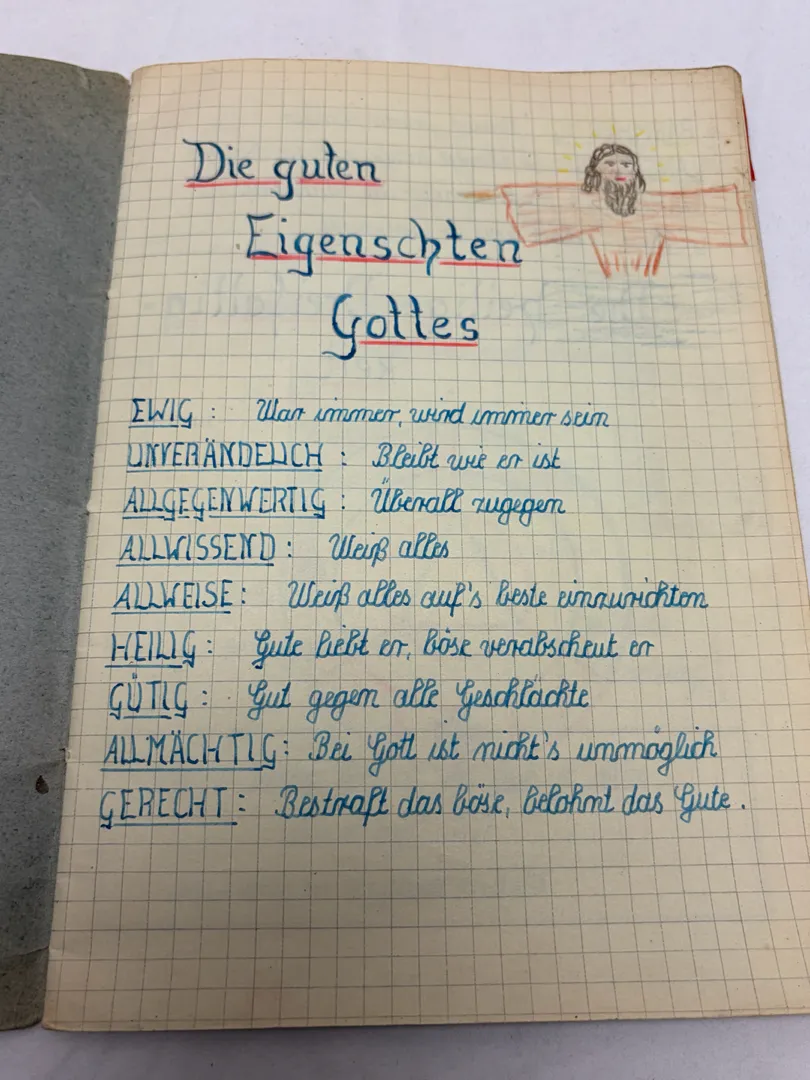 Die guten
Eigenschten
Gottes
EWIG : War immer, wird immer sein
UNVERÄNDELICH : Bleibt wie er ist
ALLGEGENWERTIG : Überall zugegen
ALLWISSEND : Weiß alles
ALLWEISE : Weiß alles auf's beste einzurichten
HEILIG : Gute liebt er, böse verabscheut er
GÜTIG : Gut gegen alle Geschlächte
ALLMÄCHTIG : Bei Gott ist nicht's unmöglich
GERECHT : Bestraft das böse, belohnt das Gute.